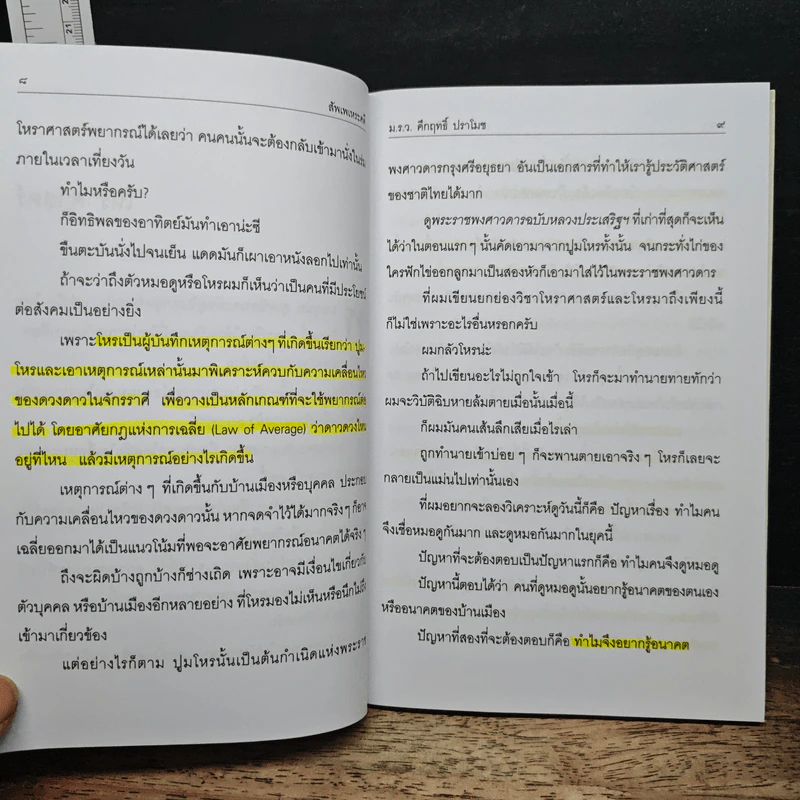 ๘
สัพเพเหระคดี
โหราศาสตร์พยากรณ์ได้เลยว่า คนคนนั้นจะต้องกลับเข้ามานั่งในร่ม
ภายในเวลาเที่ยงวัน
ทำไมหรือครับ?
ก็อิทธิพลของอาทิตย์มันทำเอาน่ะซี
ขืนตะบันนั่งไปจนเย็น แดดมันก็เผาเอาหนังลอกไปเท่านั้น
ถ้าจะว่าถึงตัวหมอดูหรือโหรผมก็เห็นว่าเป็นคนที่มีประโยชน์
ต่อสังคมเป็นอย่างยิ่ง
เพราะโหรเป็นผู้บันทึกเหตุการณ์ต่างๆ ที่เกิดขึ้นเรียกว่า ปูม
โหรและเอาเหตุการณ์เหล่านั้นมาพิเคราะห์ควบกับความเคลื่อนไหว
ของดวงดาวในจักรราศี เพื่อวางเป็นหลักเกณฑ์ที่จะใช้พยากรณ์
ไปได้ โดยอาศัยกฎแห่งการเฉลี่ย (Law of Average) ว่าดาวดวงไหน
อยู่ที่ไหน แล้วมีเหตุการณ์อย่างไรเกิดขึ้น
เหตุการณ์ต่าง ๆ ที่เกิดขึ้นกับบ้านเมืองหรือบุคคล ประกอบ
กับความเคลื่อนไหวของดวงดาวนั้น หากจดจำไว้ได้มากจริงๆ ก็อาจ
เฉลี่ยออกมาได้เป็นแนวโน้มที่พอจะอาศัยพยากรณ์อนาคตได้จริงๆ
ถึงจะผิดบ้างถูกบ้างก็ช่างเถิด เพราะอาจมีเงื่อนไขเกี่ยวกับ
ตัวบุคคล หรือบ้านเมืองอีกหลายอย่าง ที่โหรมองไม่เห็นหรือนึกไม่ถึง
เข้ามาเกี่ยวข้อง
แต่อย่างไรก็ตาม ปูมโหรนั้นเป็นต้นกำเนิดแห่งพระราช
ม.ร.ว. คึกฤทธิ์ ปราโมช
๙
พงศาวดารกรุงศรีอยุธยา อันเป็นเอกสารที่ทำให้เรารู้ประวัติศาสตร์
ของชาติไทยได้มาก
ดูพระราชพงศาวดารฉบับหลวงประเสริฐฯ ที่เก่าที่สุดก็จะเห็น
ได้ว่าในตอนแรก ๆ นั้นคัดเอามาจากปูมโหรทั้งนั้น จนกระทั่งไก่ของ
ใครฟักไข่ออกลูกมาเป็นสองหัวก็เอามาใส่ไว้ในพระราชพงศาวดาร
ที่ผมเขียนยกย่องวิชาโหราศาสตร์และโหรมาถึงเพียงนี้
ก็ไม่ใช่เพราะอะไรอื่นหรอกครับ
ผมกลัวโหรน่ะ
ถ้าไปเขียนอะไรไม่ถูกใจเข้า โหรก็จะมาทำนายทายทักว่า
ผมจะวิบัติฉิบหายล้มตายเมื่อนั้นเมื่อนี้
ก็ผมมันคนเส้นลึกเสียเมื่อไรเล่า
ถูกทำนายเข้าบ่อยๆ ก็จะพานตายเอาจริงๆ โหรก็เลยจะ
กลายเป็นแม่นไปเท่านั้นเอง
ที่ผมอยากจะลองวิเคราะห์ดูวันนี้ก็คือ ปัญหาเรื่อง ทำไมคน
จึงเชื่อหมอดูกันมาก และดูหมอกันมากในยุคนี้
ปัญหาที่จะต้องตอบเป็นปัญหาแรกก็คือ ทำไมคนจึงดูหมอดู
ปัญหานี้ตอบได้ว่า คนที่ดูหมอดูนั้นอยากรู้อนาคตของตนเอง
หรืออนาคตของบ้านเมือง
ปัญหาที่สองที่จะต้องตอบก็คือ ทำไมจึงอยากรู้อนาคต